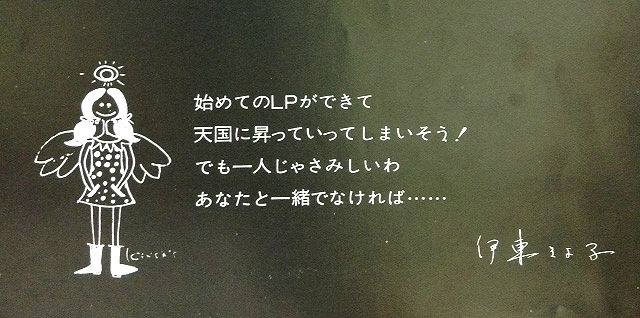 始めてのLPができて
天国に昇っていってしまいそう!
でも一人じゃさみしいわ
あなたと一緒でなければ……
伊東きよ子